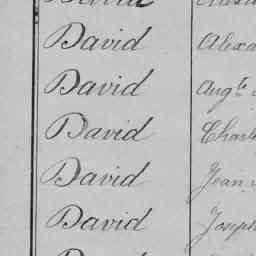 David Alexa
David Augte
David Charl
David Jean
David Joseph